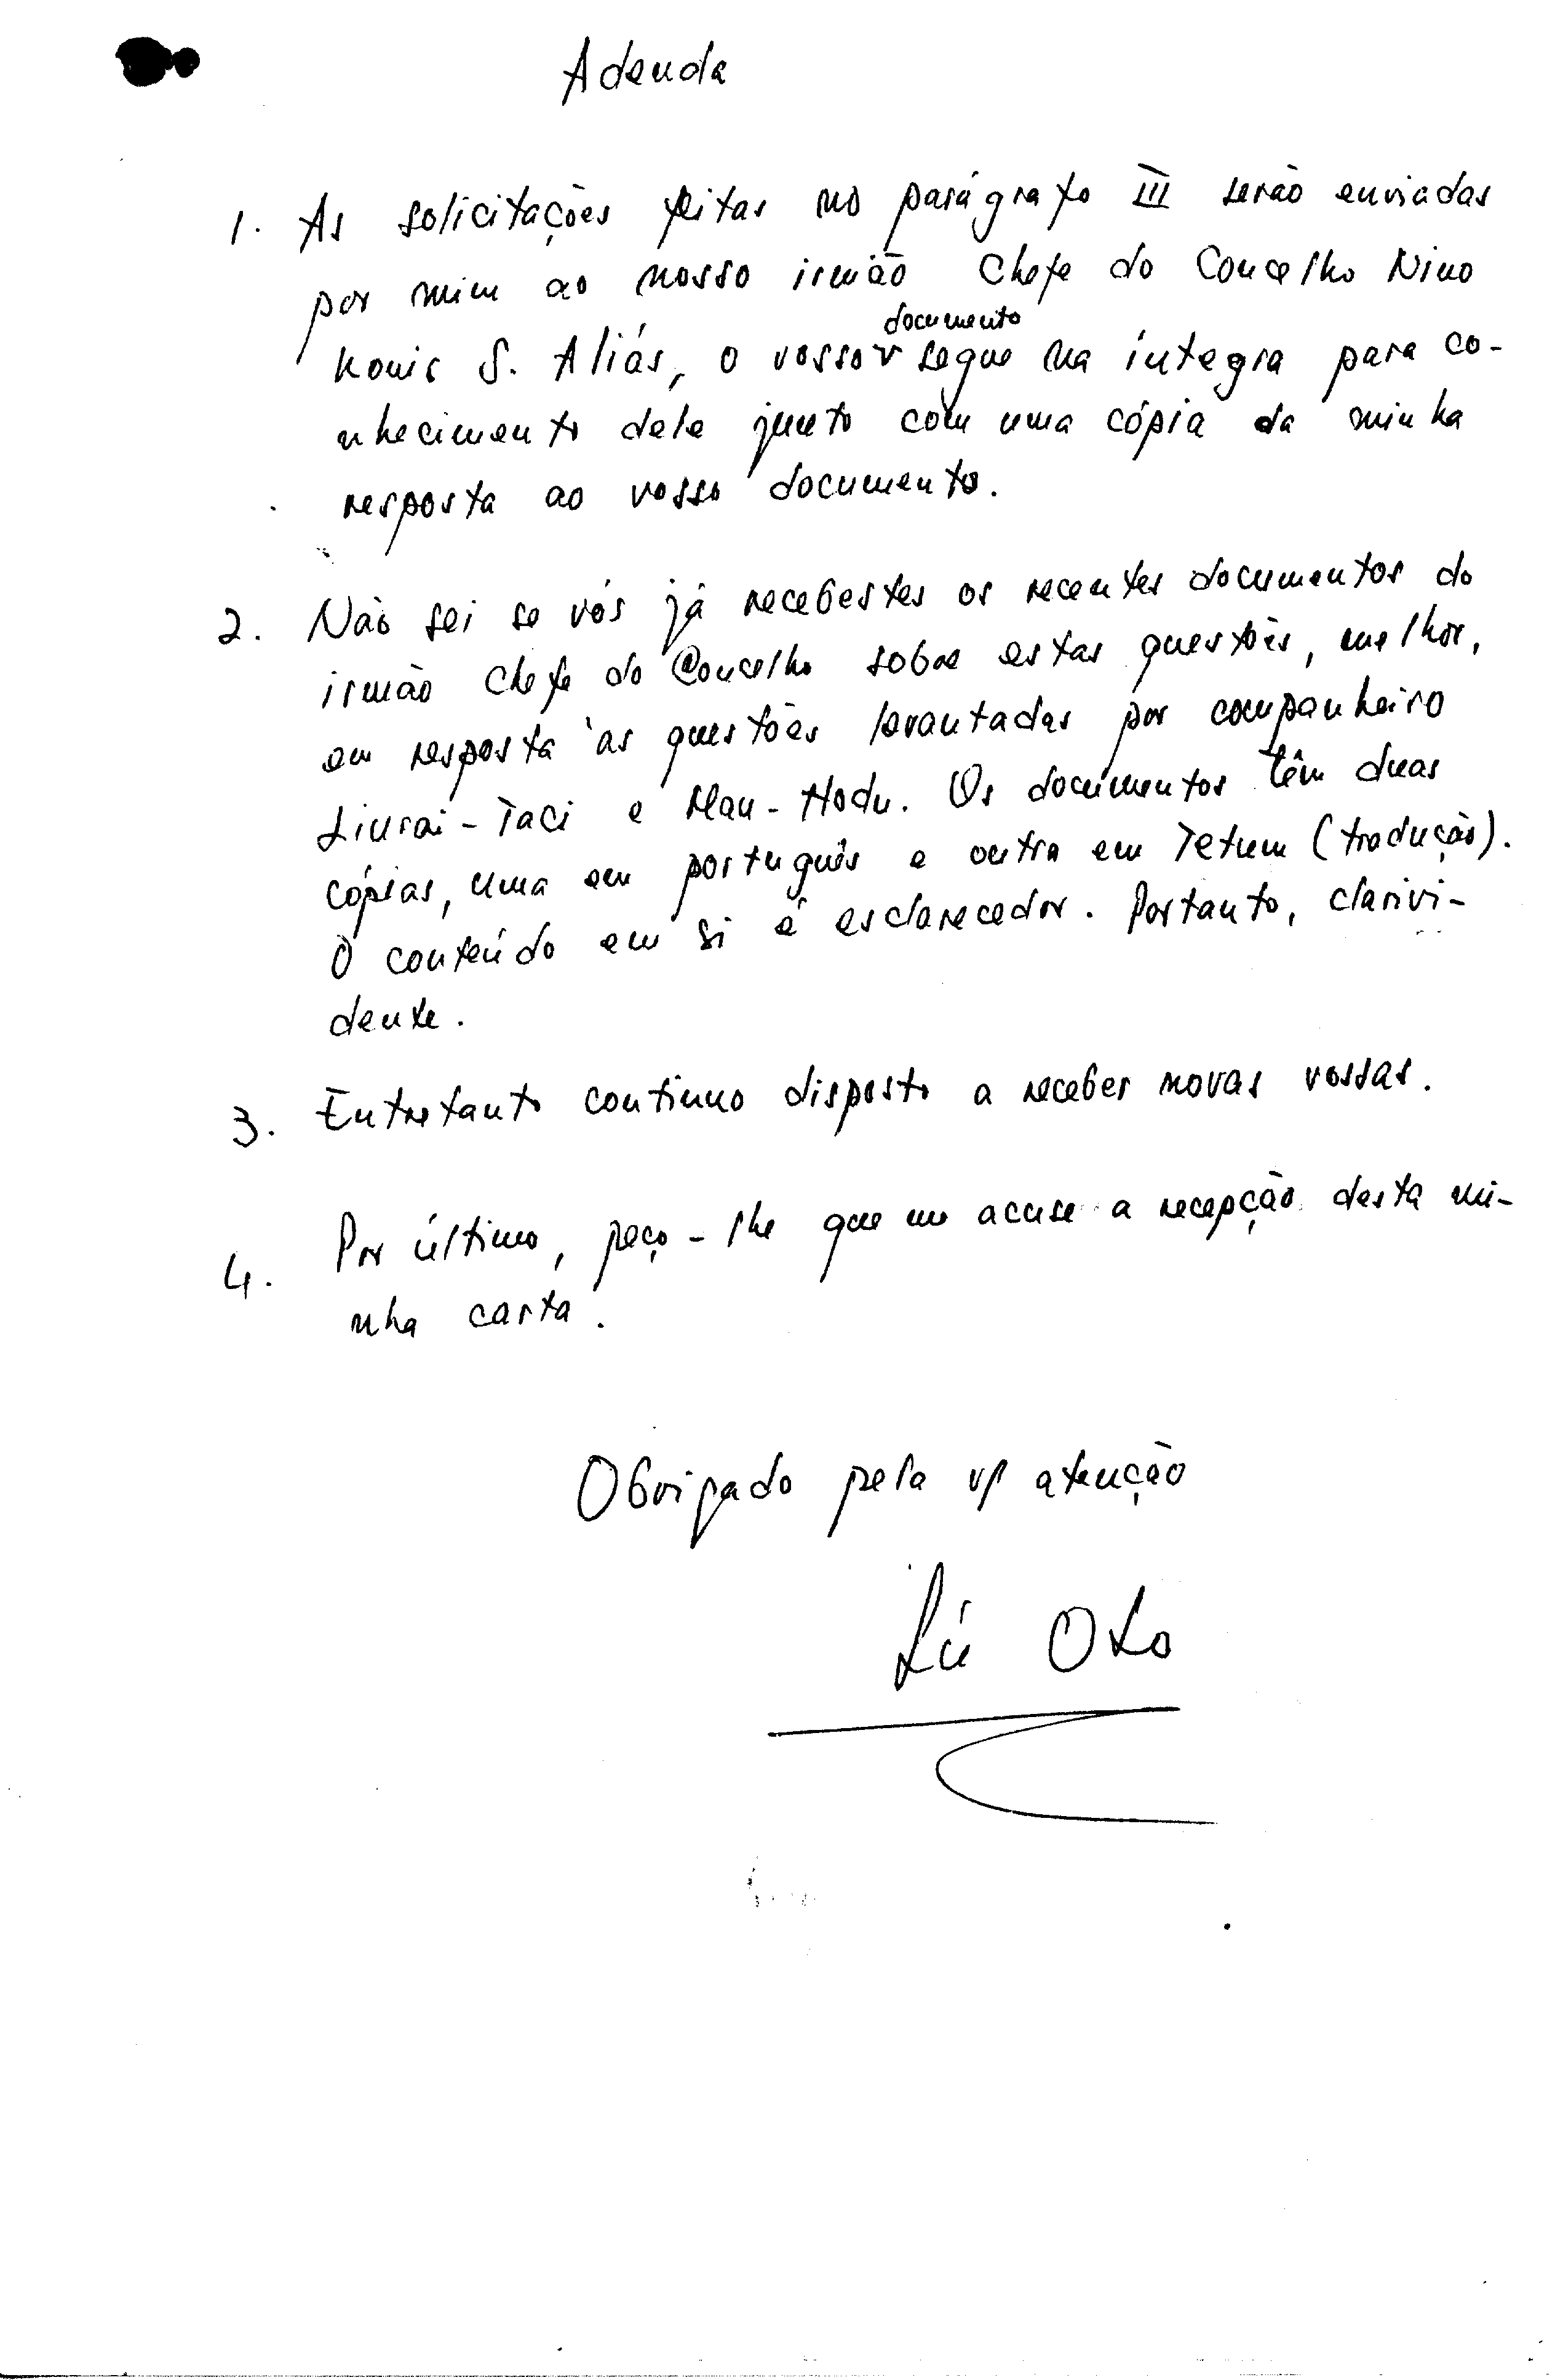 Adenda
1. As solicitações feitas no parágrafo III serão enviadas
por mim ao nosso irmão Chefe do Concelho Nino
Konis S. Aliás, o vosso documento segue na íntegra para co-
nhecimento dele junto com uma cópia da minha
resposta ao vosso documento.
2. Não sei se vós já recebestes os recentes documentos do
irmão Chefe do Concelho sobre estas questões, melhor,
em resposta às questões levantadas por companheiro
Liurai-Taci e Mau-Hodu. Os documentos têm duas
cópias, uma em português e outra em Tetum (tradução).
O conteúdo em si é esclarecedor. Portanto, clarivi-
dente.
3. Entretanto continuo disposto a receber novas vossas.
4. Por último, peço-lhe que me acuse a recepção desta mi-
nha carta.
Obrigado pela vª atenção
Lú Olo